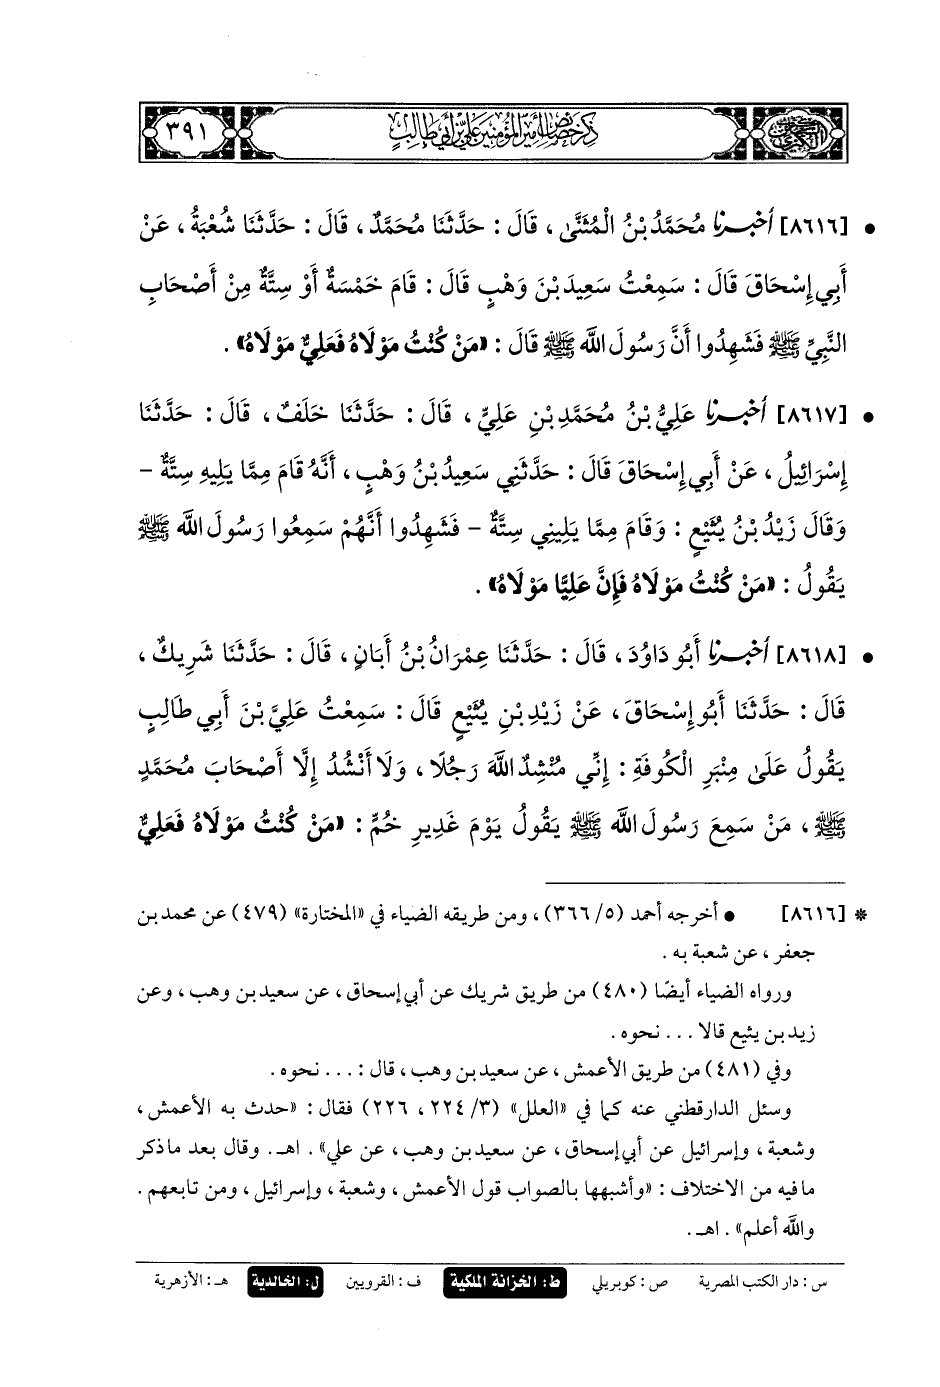 السنن الكبرى ذكر خصائص أمير المؤمنين علي بن أبي طالب ٣٩١
• [٨٦١٦] أخبرنا مُحَمَّدُ بْنُ الْمُثَنَّى ، قَالَ : حَدَّثَنَا مُحَمَّدٌ ، قَالَ : حَدَّثَنَا شُعْبَةُ ، عَنْ
أَبِي إِسْحَاقَ قَالَ : سَمِعْتُ سَعِيدَ بْنَ وَهْبٍ قَالَ : قَامَ خَمْسَةٌ أَوْ سِتَّةٌ مِنْ أَصْحَابِ
النَّبِيِّ ﷺ فَشَهِدُوا أَنَّ رَسُولَ اللَّه ﷺ قَالَ : «مَنْ كُنْتُ مَوْلَاهُ فَعَلِيٌّ مَوْلَاهُ» .
• [٨٦١٧] أخبرنا عَلِيُّ بْنُ مُحَمَّدِ بْنِ عَلِيٍّ ، قَالَ : حَدَّثَنَا خَلَفٌ ، قَالَ : حَدَّثَنَا
إِسْرَائِيلُ ، عَنْ أَبِي إِسْحَاقَ قَالَ : حَدَّثَنِي سَعِيدُ بْنُ وَهْبٍ ، أَنَّهُ قَامَ مِمَّا يَلِيهِ سِتَّةٌ -
وَقَالَ زَيْدُ بْنُ يُثَيْعٍ : وَقَامَ مِمَّا يَلِينِي سِتَّةٌ - فَشَهِدُوا أَنَّهُمْ سَمِعُوا رَسُولَ اللَّه ﷺ
يَقُولُ : «مَنْ كُنْتُ مَوْلَاهُ فَإِنَّ عَلِيًّا مَوْلَاهُ» .
• [٨٦١٨] أخبرنا أَبُو دَاوُدَ ، قَالَ : حَدَّثَنَا عِمْرَانُ بْنُ أَبَانٍ ، قَالَ : حَدَّثَنَا شَرِيكٌ ،
قَالَ : حَدَّثَنَا أَبُو إِسْحَاقَ ، عَنْ زَيْدِ بْنِ يُثَيْعٍ قَالَ : سَمِعْتُ عَلِيَّ بْنَ أَبِي طَالِبٍ
يَقُولُ عَلَى مِنْبَرِ الْكُوفَةِ : إِنِّي مُنْشِدٌ اللَّهَ رَجُلًا ، وَلَا أَنْشُدُ إِلَّا أَصْحَابَ مُحَمَّدٍ
ﷺ ، مَنْ سَمِعَ رَسُولَ اللَّه ﷺ يَقُولُ يَوْمَ غَدِيرِ خُمٍّ : «مَنْ كُنْتُ مَوْلَاهُ فَعَلِيٌّ
* [٨٦١٦] • أخرجه أحمد (٥/ ٣٦٦) ، ومن طريقه الضياء في «المختارة» (٤٧٩) عن محمد بن
جعفر ، عن شعبة به .
ورواه الضياء أيضًا (٤٨٠) من طريق شريك عن أبي إسحاق ، عن سعيد بن وهب ، وعن
زيد بن يثيع قالا . . . نحوه .
وفي (٤٨١) من طريق الأعمش ، عن سعيد بن وهب ، قال : . . . نحوه .
وسئل الدارقطني عنه كما في «العلل» (٣/ ٢٢٤ ، ٢٢٦) فقال : «حدث به الأعمش ،
وشعبة ، وإسرائيل عن أبي إسحاق ، عن سعيد بن وهب ، عن علي» . اهـ. وقال بعد ما ذكر
ما فيه من الاختلاف : «وأشبهها بالصواب قول الأعمش ، وشعبة ، وإسرائيل ، ومن تابعهم .
واللَّه أعلم» . اهـ.
س : دار الكتب المصرية ص : كوبريلي ط : الخزانة الملكية ف : القرويين ل : الخالدية هـ : الأزهرية